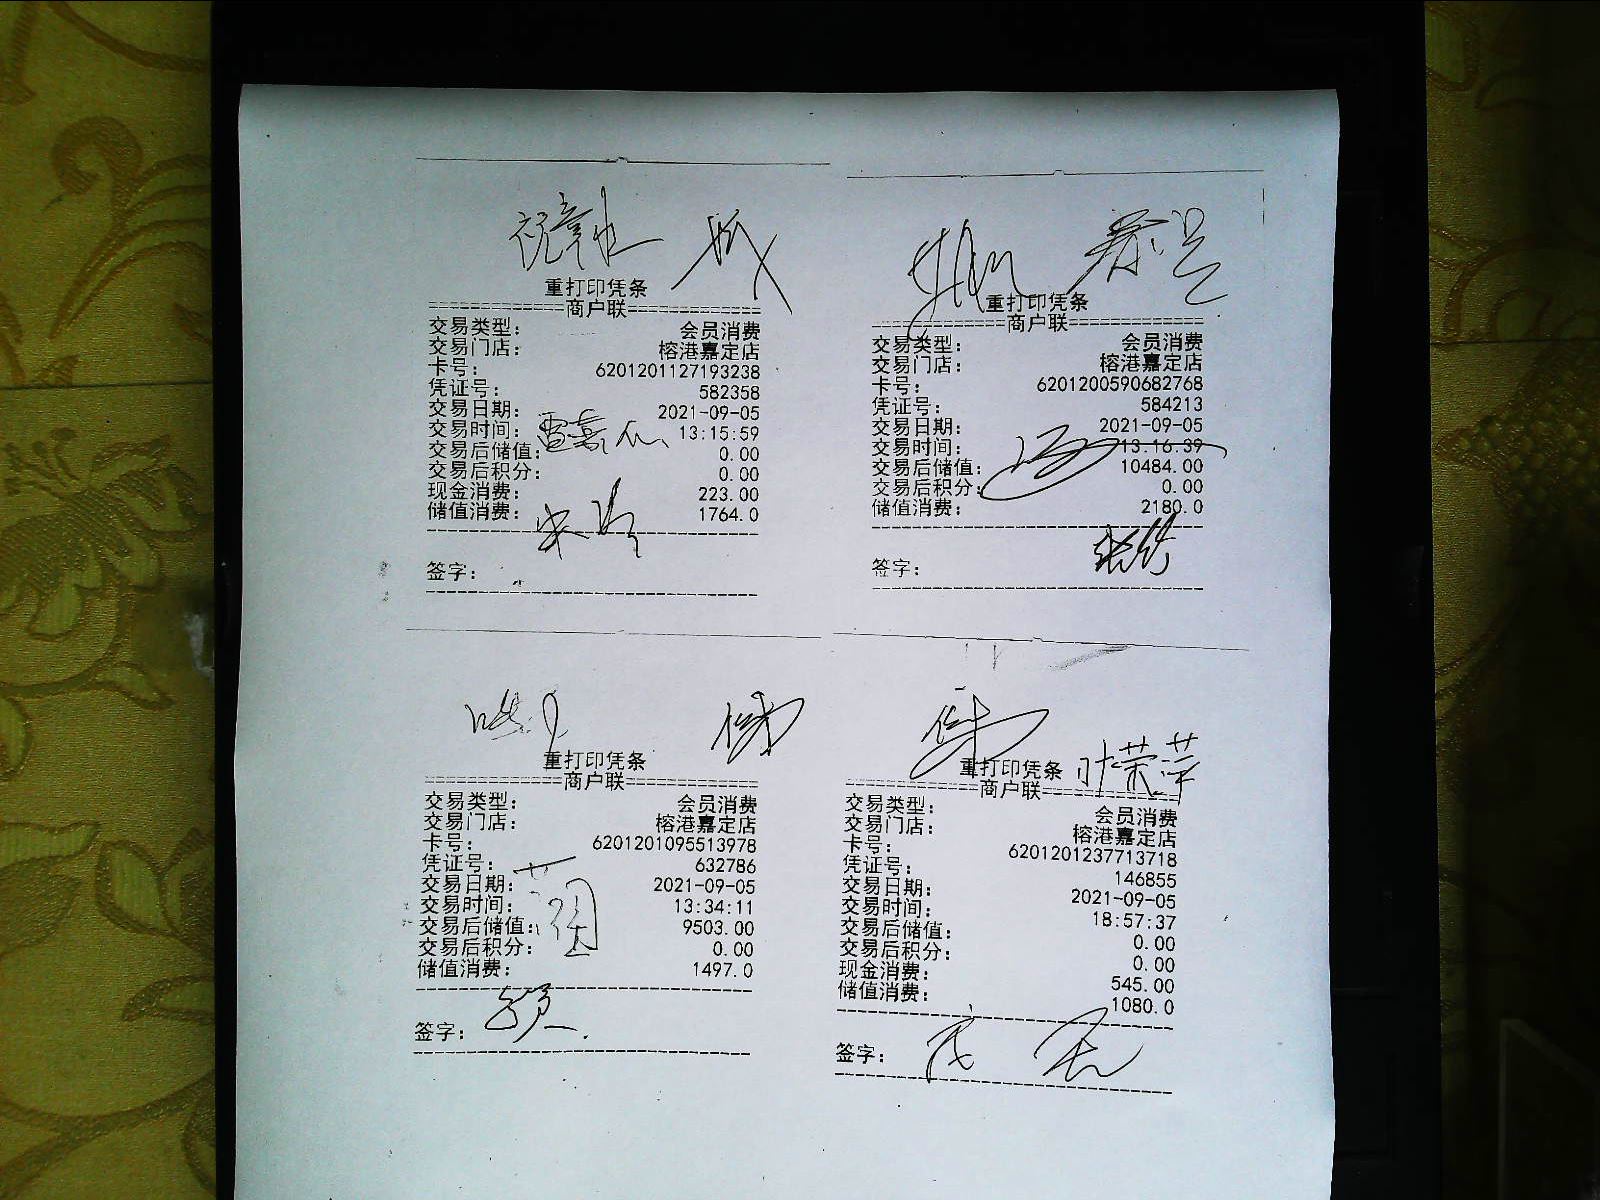 重打印凭条
============商户联============
交易类型： 会员消费
交易门店： 榕港嘉定店
卡号： 6201201127193238
凭证号： 582358
交易日期： 2021-09-05
交易时间： 13:15:59
交易后储值： 0.00
交易后积分： 0.00
现金消费： 223.00
储值消费： 1764.0
签字：
重打印凭条
============商户联============
交易类型： 会员消费
交易门店： 榕港嘉定店
卡号： 6201200590682768
凭证号： 584213
交易日期： 2021-09-05
交易时间： 13:16:39
交易后储值： 10484.00
交易后积分： 0.00
储值消费： 2180.0
签字：
重打印凭条
============商户联============
交易类型： 会员消费
交易门店： 榕港嘉定店
卡号： 6201201095513978
凭证号： 632786
交易日期： 2021-09-05
交易时间： 13:34:11
交易后储值： 9503.00
交易后积分： 0.00
储值消费： 1497.0
签字：
叶荣萍
重打印凭条
============商户联============
交易类型： 会员消费
交易门店： 榕港嘉定店
卡号： 6201201237713718
凭证号： 146855
交易日期： 2021-09-05
交易时间： 18:57:37
交易后储值： 0.00
交易后积分： 0.00
现金消费： 545.00
储值消费： 1080.0
签字：